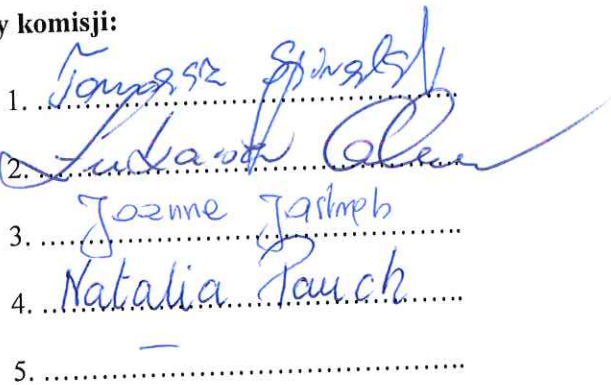 y komisji:
1. Tomasz
2. Łukasz
3. Joanna Jastrząb
4. Natalia Pauch
5. –